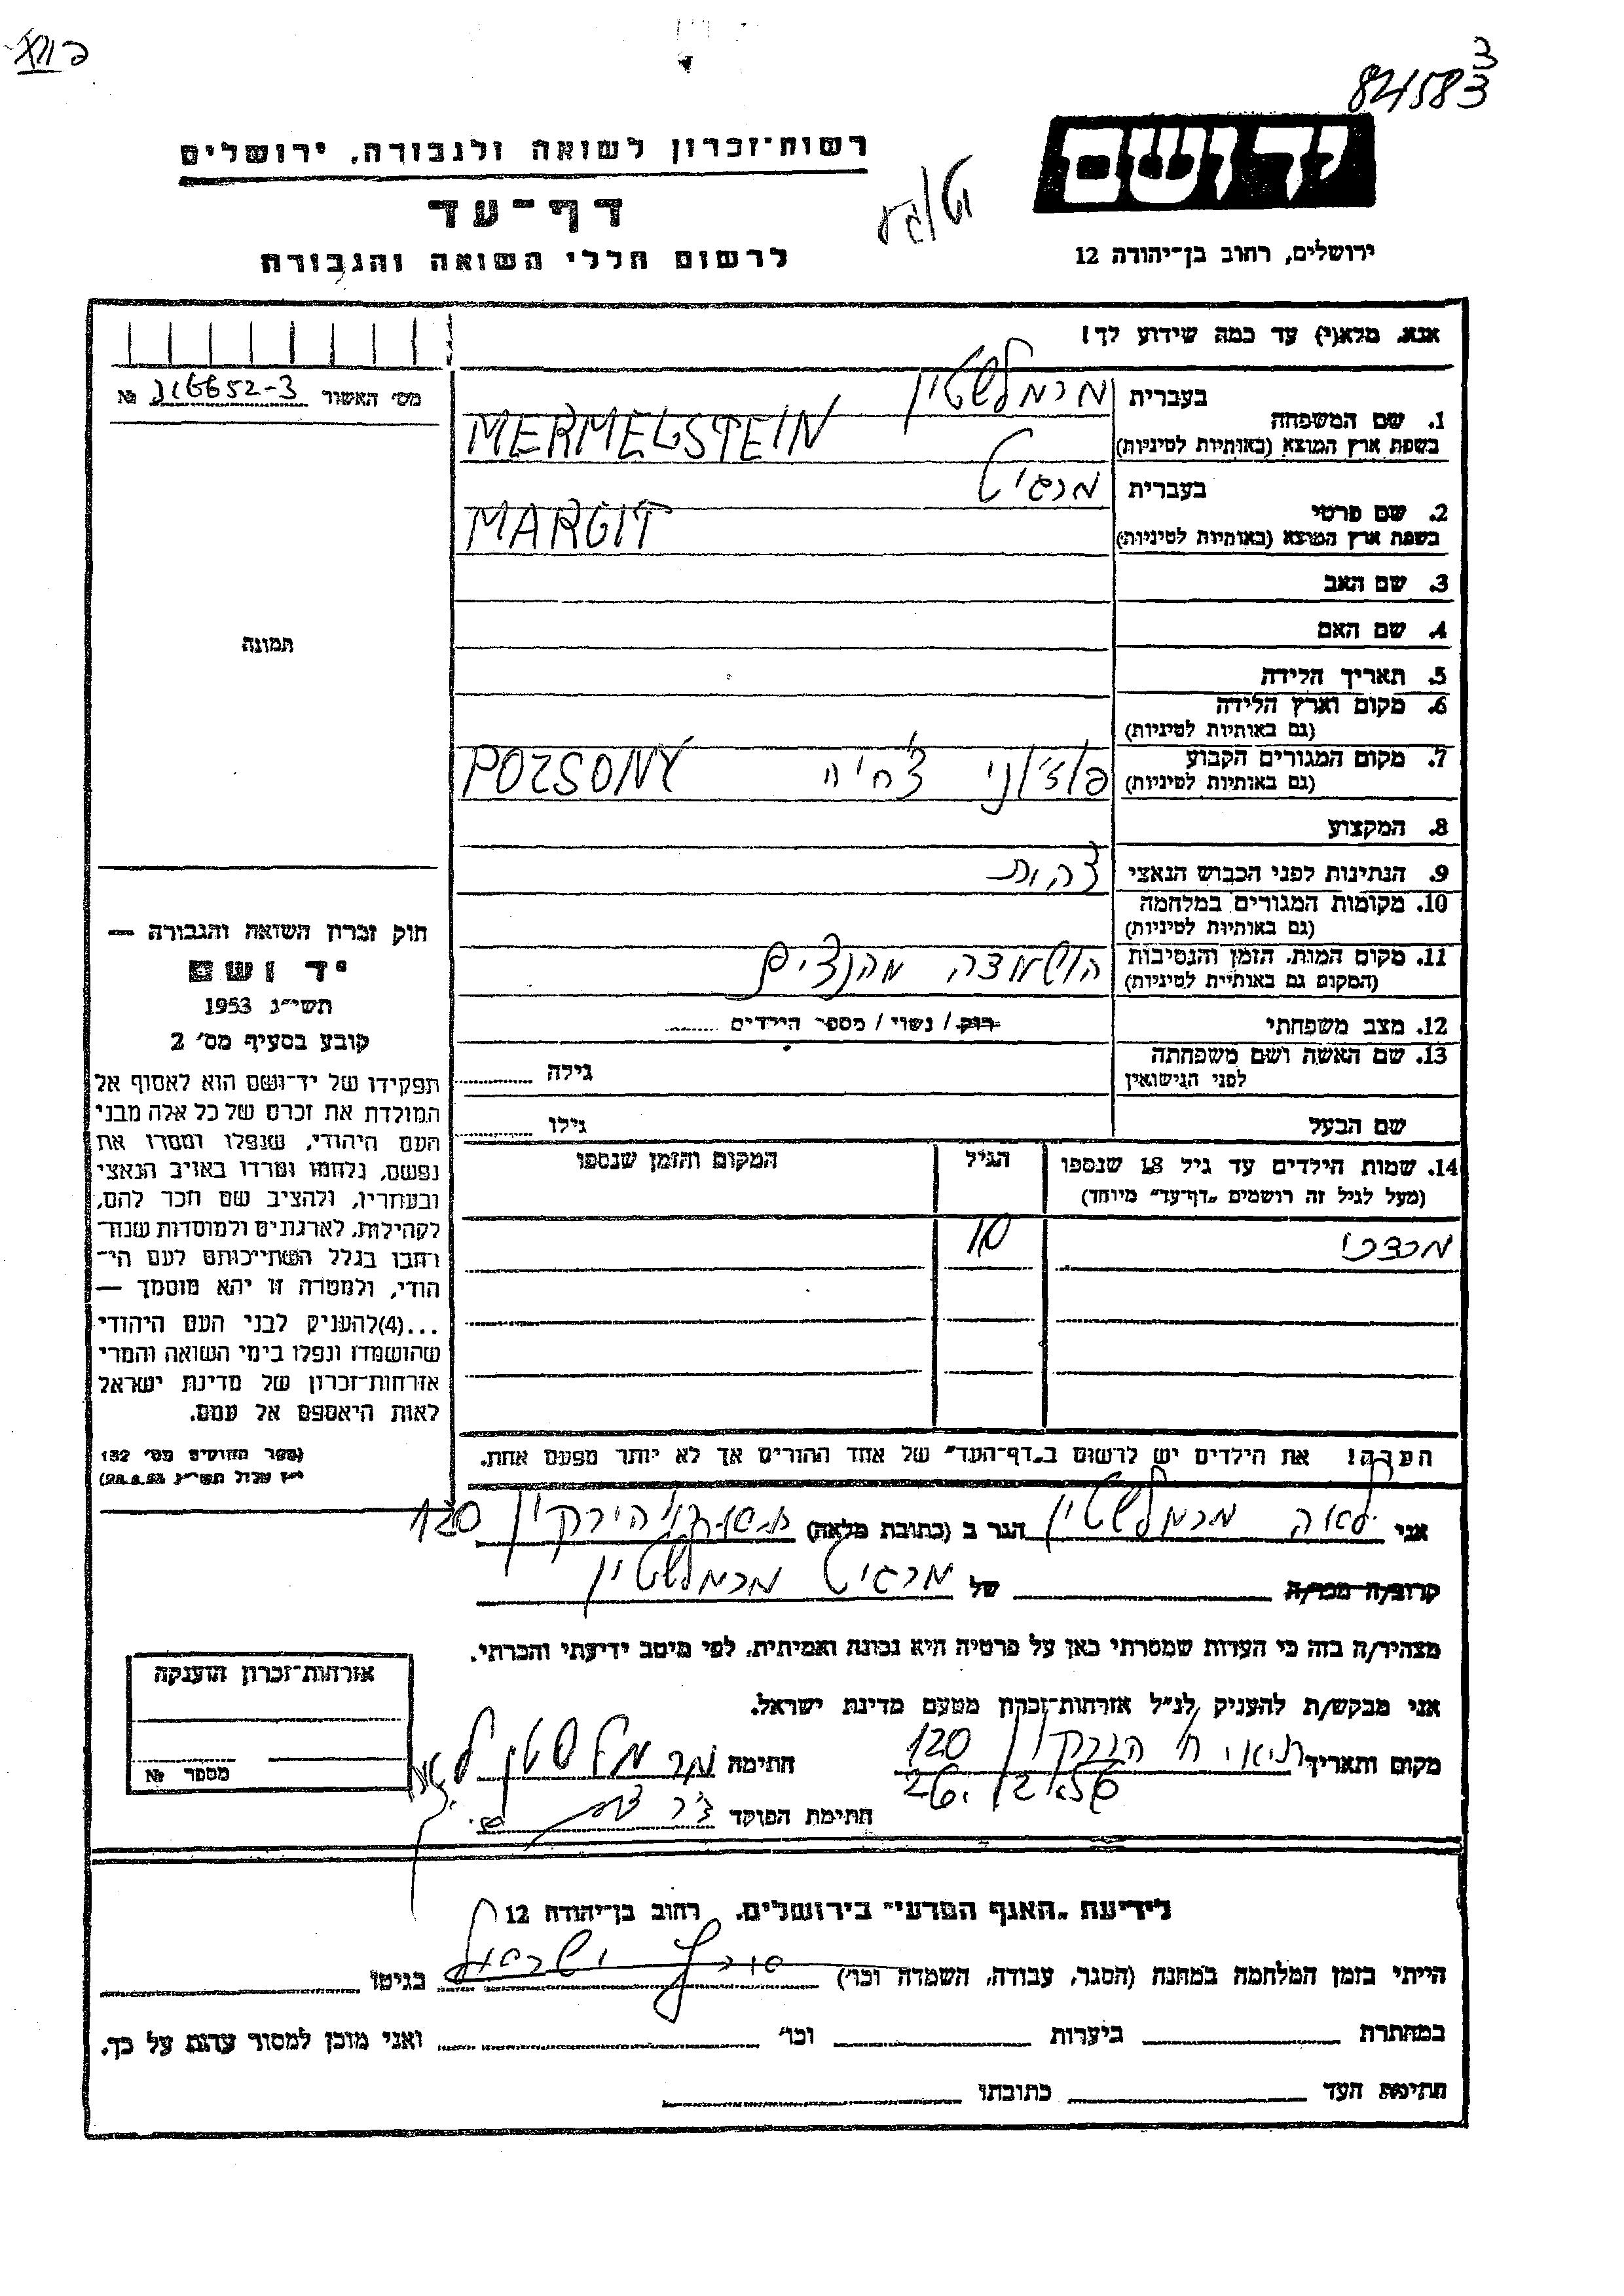 84583
יד ושם
רשות־זכרון לשואה ולגבורה, ירושלים
דף־עד
לרשום חללי השואה והגבורה
ירושלים, רחוב בן־יהודה 12
אנא, מלא(י) עד כמה שידוע לך!
מס׳ האשור 316652-3 №
תמונה
1. שם המשפחה
בעברית מרמלשטיין
בשפת ארץ המוצא (באותיות לטיניות) MERMELSTEIN
2. שם פרטי
בעברית מרגיט
בשפת ארץ המוצא (באותיות לטיניות) MARGIT
3. שם האב
4. שם האם
5. תאריך הלידה
6. מקום וארץ הלידה
(גם באותיות לטיניות)
7. מקום המגורים הקבוע
(גם באותיות לטיניות) פוז׳וני צ׳חיה POZSONY
8. המקצוע
9. הנתינות לפני הכבוש הנאצי
10. מקומות המגורים במלחמה
(גם באותיות לטיניות)
11. מקום המות, הזמן והנסיבות
(המקום גם באותיות לטיניות) הושמדה מהנצים
12. מצב משפחתי רווק / נשוי / מספר הילדים
13. שם האשה ושם משפחתה
לפני הנישואין גילה
שם הבעל גילו
14. שמות הילדים עד גיל 18 שנספו
(מעל לגיל זה רושמים „דף־עד״ מיוחד)
הגיל
המקום והזמן שנספו
10
הערה! את הילדים יש לרשום ב„דף־העד״ של אחד ההורים אך לא יותר מפעם אחת.
חוק זכרון השואה והגבורה —
יד ושם
תשי״ג 1953
קובע בסעיף מס׳ 2
תפקידו של יד־ושם הוא לאסוף אל
המולדת את זכרם של כל אלה מבני
העם היהודי, שנפלו ומסרו את
נפשם, נלחמו ומרדו באויב הנאצי
ובעוזריו, ולהציב שם וזכר להם,
לקהילות, לארגונים ולמוסדות שנח־
רבו בגלל השתייכותם לעם הי־
הודי, ולמטרה זו יהא מוסמך —
...(4)להעניק לבני העם היהודי
שהושמדו ונפלו בימי השואה והמרי
אזרחות־זכרון של מדינת ישראל
לאות היאספם אל עמם.
(ספר החוקים מס׳ 132
י״ז אלול תשי״ג 28.8.53)
אני לאה מרמלשטיין הגר ב (כתובת מלאה) הירקון 120
קרוב/ה מכר/ה של מרגיט מרמלשטיין
מצהיר/ה בזה כי העדות שמסרתי כאן על פרטיה היא נכונה ואמיתית, לפי מיטב ידיעתי והכרתי.
אני מבקש/ת להעניק לנ״ל אזרחות־זכרון מטעם מדינת ישראל.
מקום ותאריך הירקון 120
חתימה מרמלשטין
חתימת הפוקד
אזרחות־זכרון הוענקה
מספר №
לידיעת „האגף המדעי״ בירושלים, רחוב בן־יהודה 12
הייתי בזמן המלחמה במחנה (הסגר, עבודה, השמדה וכו׳) בגיטו
במחתרת ביערות וכו׳ ואני מוכן למסור עדות על כך.
חתימת העד כתובתו